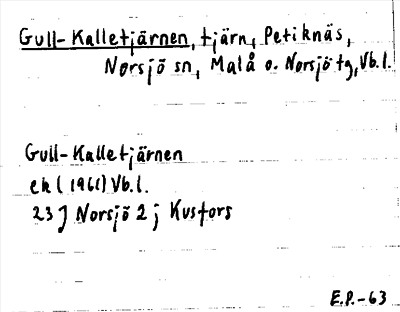 Gull-Kalletjärnen, tjärn, Petiknäs,
Norsjö sn, Malå o. Norsjö tg, Vb.l.
Gull-Kalletjärnen
ek (1961) Vb.l.
23 J Norsjö 2 j Kusfors
E.P.-63